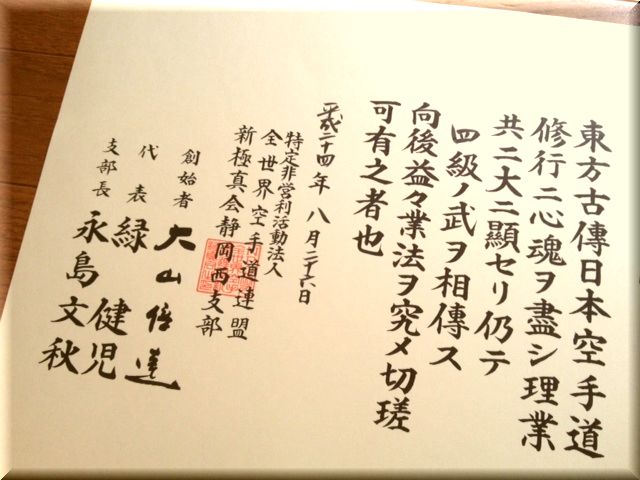 東方古傳日本空手道
修行ニ心魂ヲ盡シ理業
共ニ大ニ顯セリ仍テ
四級ノ武ヲ相傳ス
向後益々業法ヲ究メ切瑳
可有之者也
平成二十四年八月二十六日
特定非営利活動法人
全世界空手道連盟
新極真会静岡西支部
創始者 大山倍達
代表 緑健児
支部長 永島文秋